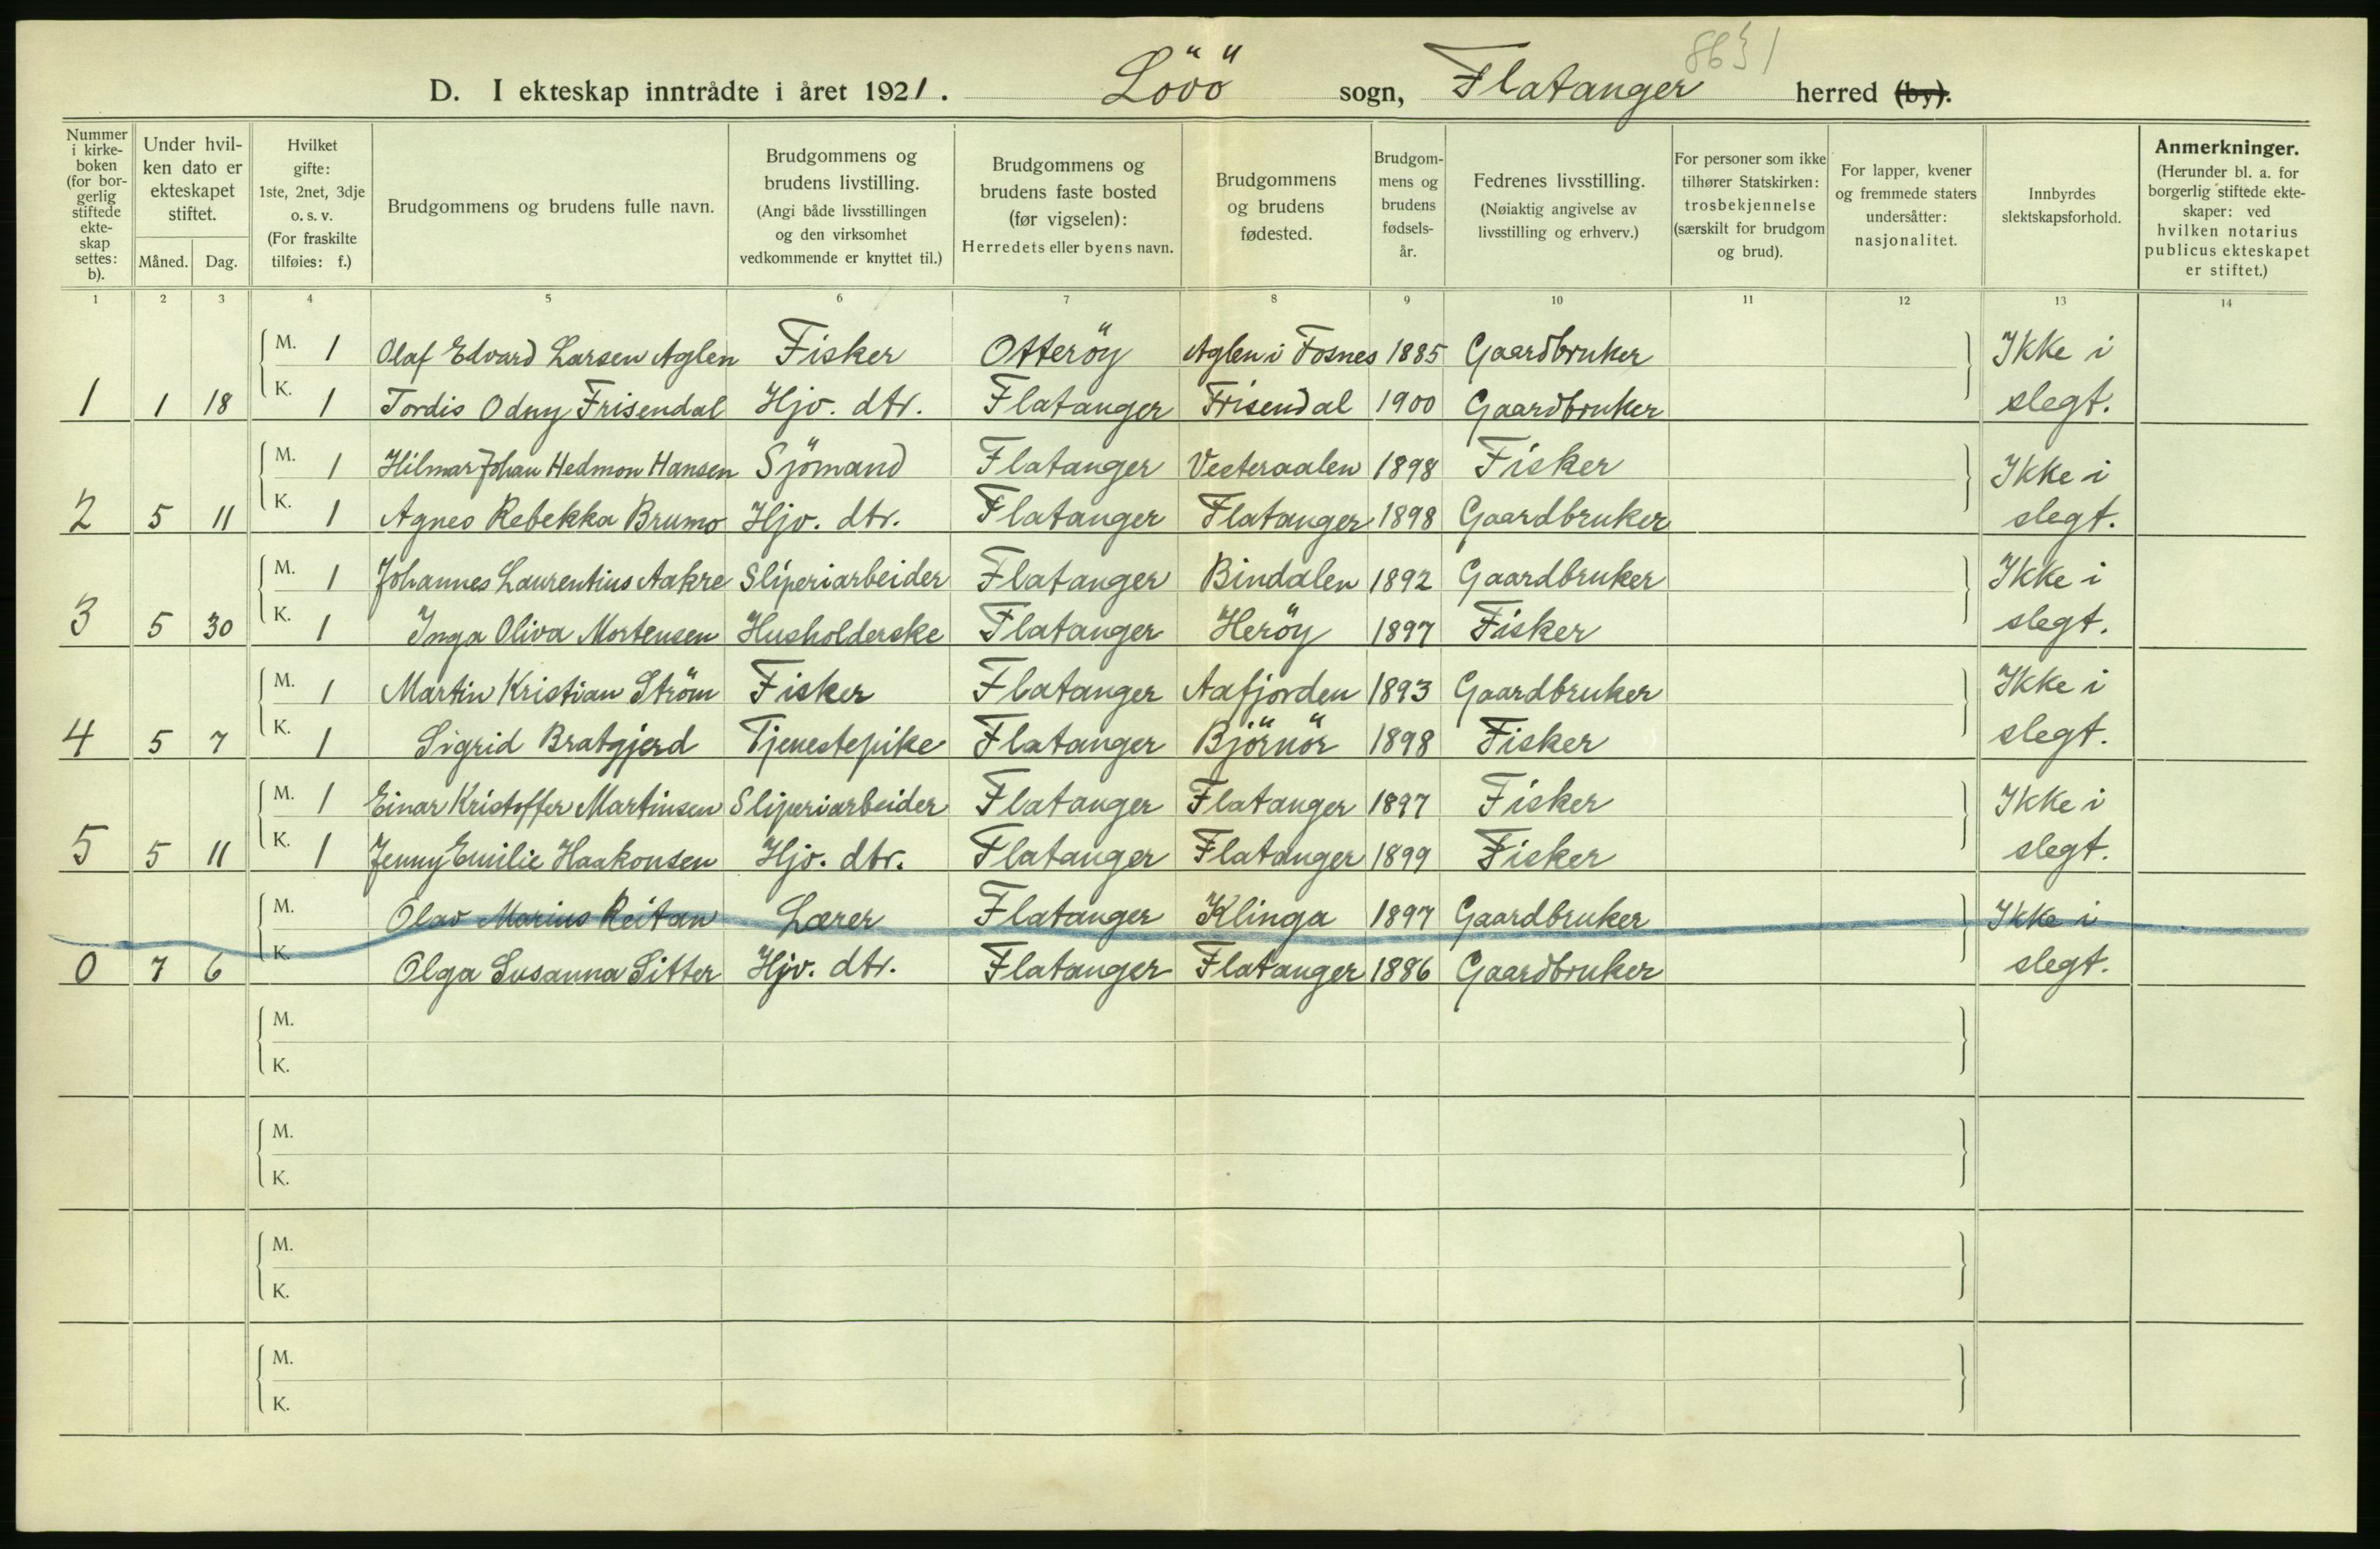 863 1
D. I ekteskap inntrådte i året 1921. Lövö sogn, Flatanger herred (by).
Nummer i kirkeboken (for borgerlig stiftede ekteskap settes: b).
Under hvilken dato er ekteskapet stiftet.
Måned. Dag.
Hvilket gifte: 1ste, 2net, 3dje o. s. v. (For fraskilte tilføies: f.)
Brudgommens og brudens fulle navn.
Brudgommens og brudens livstilling. (Angi både livsstillingen og den virksomhet vedkommende er knyttet til.)
Brudgommens og brudens faste bosted (før vigselen): Herredets eller byens navn.
Brudgommens og brudens fødested.
Brudgommens og brudens fødselsår.
Fedrenes livsstilling. (Nøiaktig angivelse av livsstilling og erhverv.)
For personer som ikke tilhører Statskirken: trosbekjennelse (særskilt for brudgom og brud).
For lapper, kvener og fremmede staters undersåtter: nasjonalitet.
Innbyrdes slektskapsforhold.
Anmerkninger. (Herunder bl. a. for borgerlig stiftede ekteskaper: ved hvilken notarius publicus ekteskapet er stiftet.)
1 2 3 4 5 6 7 8 9 10 11 12 13 14
M. 1 Olaf Edvard Larsen Aglen Fisker Otteröy Aglen i Fosnes 1885 Gaardbruker Ikke i
1 1 18 K. 1 Tordis Odny Frisendal Hjv. dtr. Flatanger Frisendal 1900 Gaardbruker slegt.
M. 1 Hilmar Johan Hedmon Hansen Sjömand Flatanger Vesteraalen 1898 Fisker Ikke i
2 5 11 K. 1 Agnes Rebekka Brumo Hjv. dtr. Flatanger Flatanger 1898 Gaardbruker slegt.
M. 1 Johannes Laurentius Aakre Sliperiarbeider Flatanger Bindalen 1892 Gaardbruker Ikke i
3 5 30 K. 1 Inga Oliva Mortensen Husholderske Flatanger Heröy 1897 Fisker slegt.
M. 1 Martin Kristian Ström Fisker Flatanger Aafjorden 1893 Gaardbruker Ikke i
4 5 7 K. 1 Sigrid Bratgjerd Tjenestepike Flatanger Björnör 1898 Fisker slegt.
M. 1 Einar Kristoffer Martinsen Sliperiarbeider Flatanger Flatanger 1897 Fisker Ikke i
5 5 11 K. 1 Jenny Emilie Haakonsen Hjv. dtr. Flatanger Flatanger 1899 Fisker slegt.
M. Olav Marius Reitan Lærer Flatanger Klinga 1897 Gaardbruker Ikke i
0 7 6 K. Olga Susanna Sitter Hjv. dtr. Flatanger Flatanger 1886 Gaardbruker slegt.
M.
K.
M.
K.
M.
K.
M.
K.